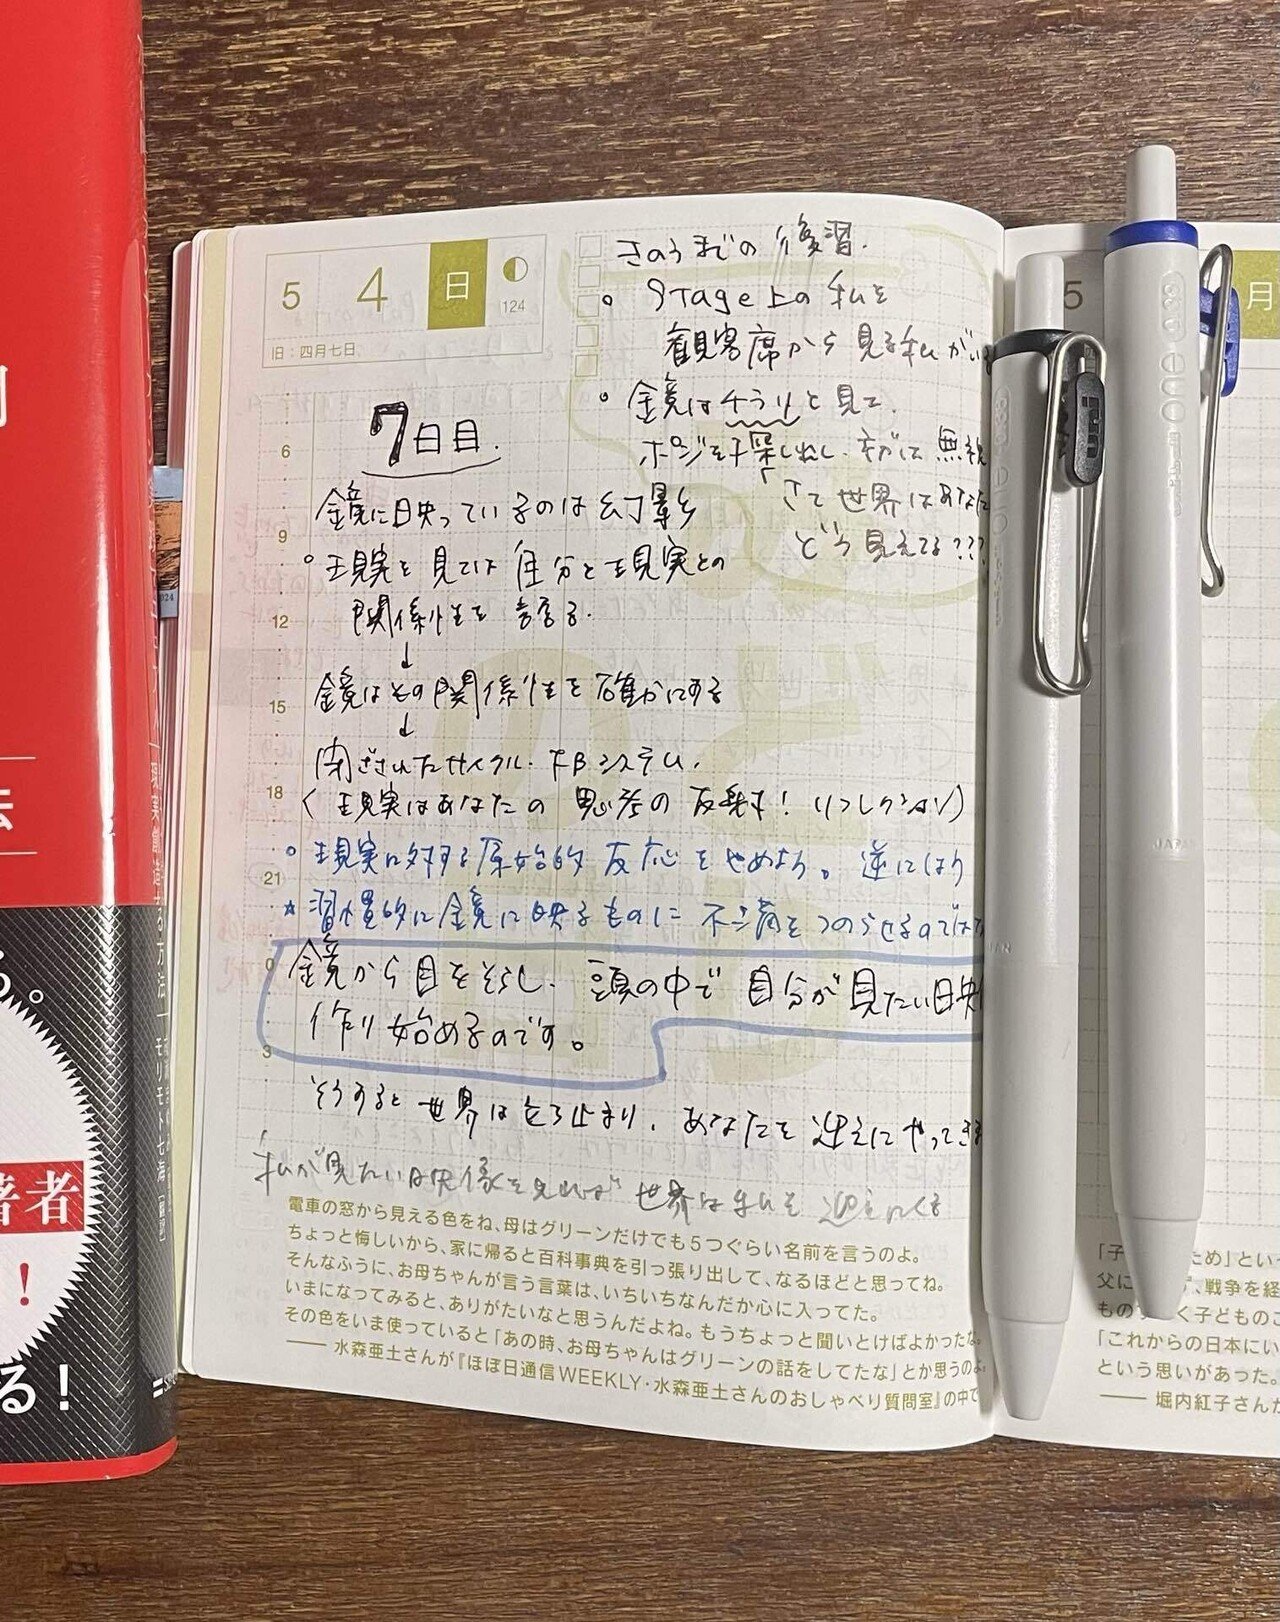 5 4 日
124
旧：四月七日
きのうまでの復習.
Stage上の私を
観客席から見る私がい
鏡はチラリと見て.
ポジを探し出し. ネガは無視
さて世界はあなた
どう見えてる???
7日目.
鏡に映っているのは幻影
現実を見ては自分と現実との
関係性を言う.
↓
鏡はその関係性を確かにする
↓
閉ざされたサイクル. FBシステム.
(現実はあなたの思考の反射! リフレクション)
現実に対する原始的反応をやめよう。逆にはり
☆習慣的に鏡に映るものに不満をつのらせるのでは
鏡から目をそらし、頭の中で自分が見たい映
作り始めるのです。
そうすると世界は立ち止まり、あなたを迎えにやってきま
私が見たい映像を見れば世界は私を迎えにくる
6
9
12
15
18
21
0
3
電車の窓から見える色をね、母はグリーンだけでも5つぐらい名前を言うのよ。
ちょっと悔しいから、家に帰ると百科事典を引っ張り出して、なるほどと思ってね。
そんなふうに、お母ちゃんが言う言葉は、いちいちなんだか心に入ってた。
いまになってみると、ありがたいなと思うんだよね。もうちょっと聞いとけばよかったな。
その色をいま使っていると「あの時、お母ちゃんはグリーンの話をしてたな」とか思うのよ。
── 水森亜土さんが『ほぼ日通信WEEKLY・水森亜土さんのおしゃべり質問室』の中で
5
月
「子
ため」とい
父に
、戦争を経
もの
く子どものこ
「これからの日本にい
という思いがあった。
── 堀内紅子さんが
uni
uni-ball one
JAPAN
法
る。
著者
！
る！
現実創造する方法
モリモト七海 [翻訳]